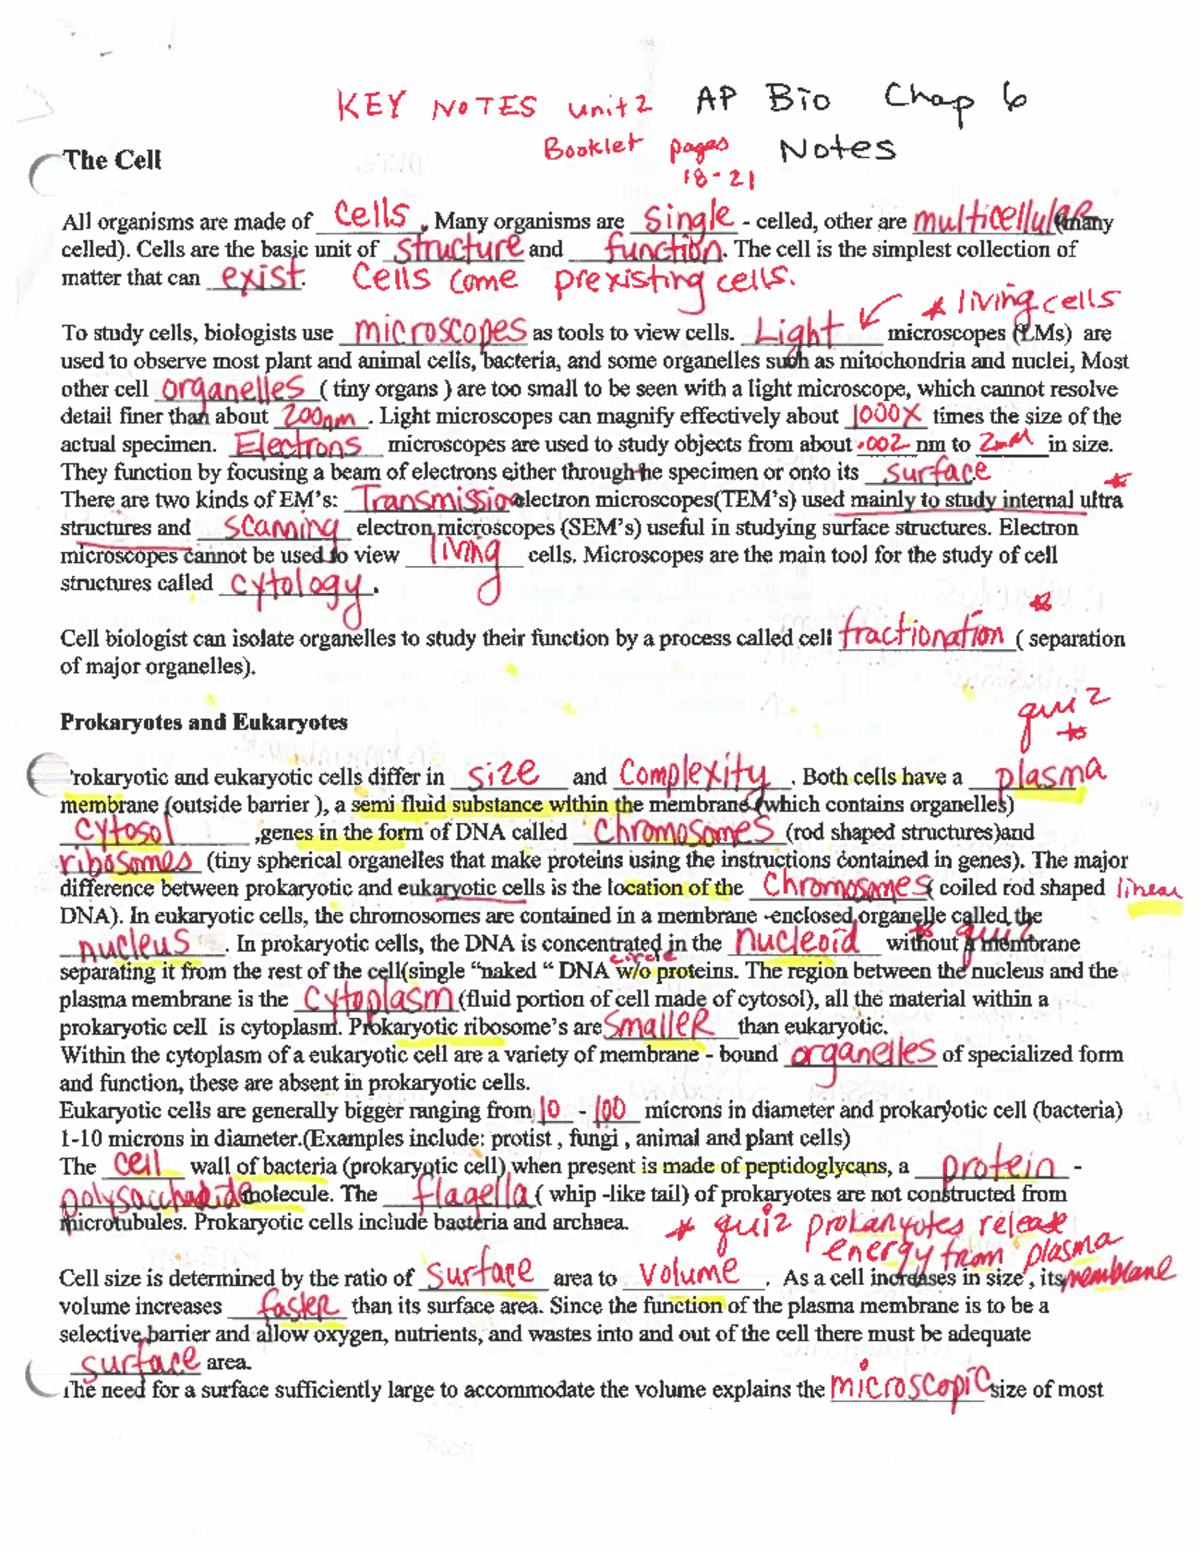 KEY NOTES unit 2 AP Bio Chap 6
Booklet pages Notes
18-21
The Cell
All organisms are made of cells. Many organisms are single - celled, other are multicellular (many
celled). Cells are the basic unit of structure and function. The cell is the simplest collection of
matter that can exist. Cells come prexisting cells.
* living cells
To study cells, biologists use microscopes as tools to view cells. Light microscopes (LMs) are
used to observe most plant and animal cells, bacteria, and some organelles such as mitochondria and nuclei, Most
other cell organelles ( tiny organs ) are too small to be seen with a light microscope, which cannot resolve
detail finer than about 200nm. Light microscopes can magnify effectively about 1000X times the size of the
actual specimen. Electrons microscopes are used to study objects from about .002 nm to 2mM in size.
They function by focusing a beam of electrons either through the specimen or onto its surface.
There are two kinds of EM's: Transmission electron microscopes(TEM's) used mainly to study internal ultra
structures and scanning electron microscopes (SEM's) useful in studying surface structures. Electron
microscopes cannot be used to view living cells. Microscopes are the main tool for the study of cell
structures called cytology.
Cell biologist can isolate organelles to study their function by a process called cell fractionation ( separation
of major organelles).
Prokaryotes and Eukaryotes
quiz
*
rokaryotic and eukaryotic cells differ in size and complexity. Both cells have a plasma
membrane (outside barrier ), a semi fluid substance within the membrane (which contains organelles)
cytosol ,genes in the form of DNA called chromosomes (rod shaped structures)and
ribosomes (tiny spherical organelles that make proteins using the instructions contained in genes). The major
difference between prokaryotic and eukaryotic cells is the location of the chromosomes ( coiled rod shaped linear
DNA). In eukaryotic cells, the chromosomes are contained in a membrane -enclosed organelle called the
* quiz
nucleus. In prokaryotic cells, the DNA is concentrated in the nucleoid without a membrane
circle
separating it from the rest of the cell(single "naked " DNA w/o proteins. The region between the nucleus and the
plasma membrane is the cytoplasm (fluid portion of cell made of cytosol), all the material within a
prokaryotic cell is cytoplasm. Prokaryotic ribosome's are smaller than eukaryotic.
Within the cytoplasm of a eukaryotic cell are a variety of membrane - bound organelles of specialized form
and function, these are absent in prokaryotic cells.
Eukaryotic cells are generally bigger ranging from 10 - 100 microns in diameter and prokaryotic cell (bacteria)
1-10 microns in diameter.(Examples include: protist , fungi , animal and plant cells)
The cell wall of bacteria (prokaryotic cell) when present is made of peptidoglycans, a protein -
polysaccharide molecule. The flagella ( whip -like tail) of prokaryotes are not constructed from
microtubules. Prokaryotic cells include bacteria and archaea. * quiz prokanyotes release
energy from plasma
Cell size is determined by the ratio of surface area to volume. As a cell increases in size , its membrane
volume increases faster than its surface area. Since the function of the plasma membrane is to be a
selective barrier and allow oxygen, nutrients, and wastes into and out of the cell there must be adequate
surface area.
The need for a surface sufficiently large to accommodate the volume explains the microscopic size of most